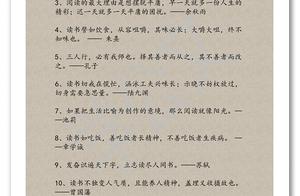 3、阅读的最大理由是想摆脱平庸，早一天就多一份人生的
精彩；迟一天就多一天平庸的困扰。——余秋雨
4、读书譬如饮食，从容咀嚼，其味必长；大嚼大咀，终不
知味也。——朱熹
5、三人行，必有我师焉。择其善者而从之，其不善者而改
之。——孔子
6、读书切戒在慌忙，涵泳工夫兴味长；未晓不妨权放过，
切身需要急思量。——陆九渊
7、如果把生活比喻为创作的意境，那么阅读就像阳光。—
—池莉
8、读书如吃饭，善吃饭者长精神，不善吃者生疾病。——
章学诚
9、发奋识遍天下字，立志读尽人间书。——苏轼
10、读书不独变人气质，且能养人精神，盖理义收摄故也。
——曾国藩